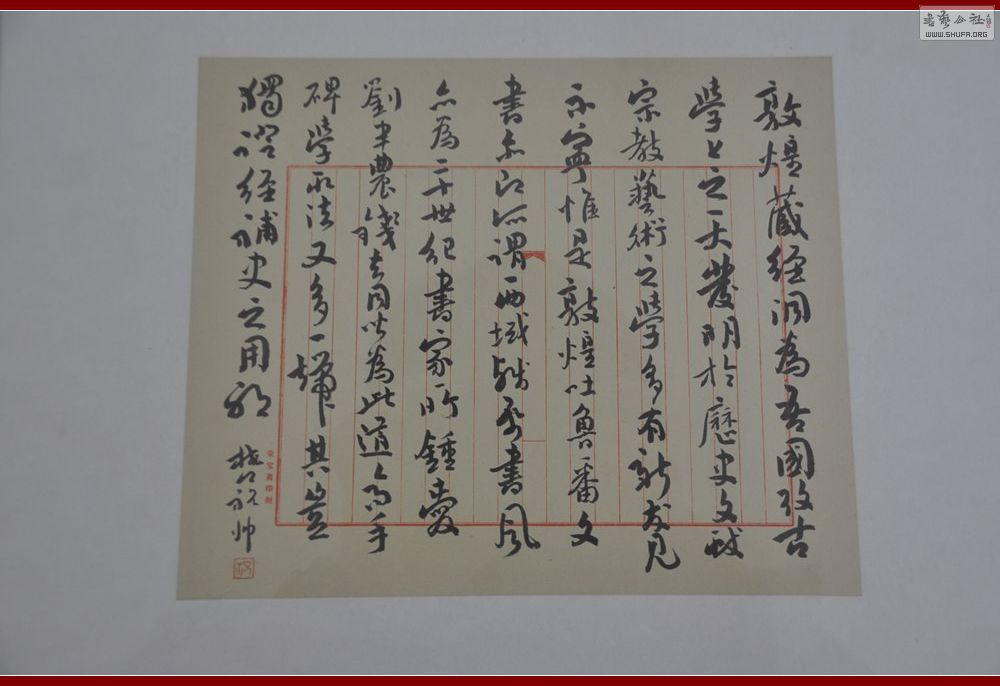 敦煌藏经洞為吾國攷古
學上之一大發明於歷史文獻
宗教藝術之學多有新发見
不寧惟是敦煌吐魯番文
書亦即所謂西域殘乑書風
亦為二十世纪書家所鍾愛
劉半農錢玄同皆為此道高手
碑學取法又多一
其豈
獨證经補史之用郍
梅墨生
书艺公社
WWW.SHUFA.ORG